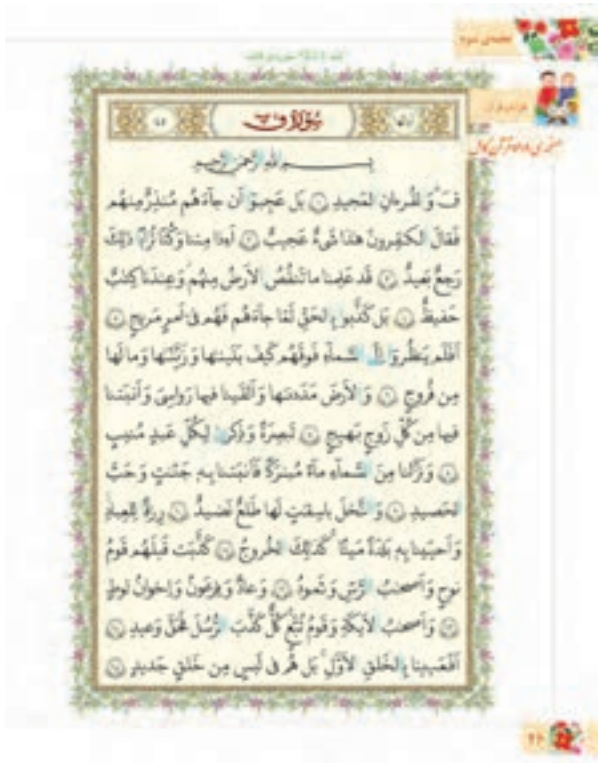 جلسه‌ی سوم
سورة ق
بِسمِ اللّٰهِ الرَّحمٰنِ الرَّحيمِ
قٓ وَ القُرءانِ المَجيدِ ١ بَل عَجِبوٓا اَن جآءَهُم مُنذِرٌ مِنهُم
فَقالَ الكٰفِرونَ هٰذا شَىءٌ عَجيبٌ ٢ اَءِذا مِتنا وَ كُنّا تُرابًا ذٰلِكَ
رَجعٌ بَعيدٌ ٣ قَد عَلِمنا ما تَنقُصُ الاَرضُ مِنهُم وَ عِندَنا كِتٰبٌ
حَفيظٌ ٤ بَل كَذَّبوا بِالحَقِّ لَمّا جآءَهُم فَهُم فى اَمرٍ مَريجٍ ٥
اَفَلَم يَنظُروٓا اِلَى السَّمآءِ فَوقَهُم كَيفَ بَنَينٰها وَ زَيَّنّٰها وَ ما لَها
مِن فُروجٍ ٦ وَ الاَرضَ مَدَدنٰها وَ اَلقَينا فيها رَواسِىَ وَ اَنبَتنا
فيها مِن كُلِّ زَوجٍ بَهيجٍ ٧ تَبصِرَةً وَ ذِكرىٰ لِكُلِّ عَبدٍ مُنيبٍ
٨ وَ نَزَّلنا مِنَ السَّمآءِ مآءً مُبٰرَكًا فَاَنبَتنا بِهٖ جَنّٰتٍ وَ حَبَّ
الحَصيدِ ٩ وَ النَّخلَ باسِقٰتٍ لَها طَلعٌ نَضيدٌ ١٠ رِزقًا لِلعِبادِ
وَ اَحيَينا بِهٖ بَلدَةً مَيتًا كَذٰلِكَ الخُروجُ ١١ كَذَّبَت قَبلَهُم قَومُ
نوحٍ وَ اَصحٰبُ الرَّسِّ وَ ثَمودُ ١٢ وَ عادٌ وَ فِرعَونُ وَ اِخوانُ لوطٍ
١٣ وَ اَصحٰبُ الاَيكَةِ وَ قَومُ تُبَّعٍ كُلٌّ كَذَّبَ الرُّسُلَ فَحَقَّ وَعيدِ ١٤
اَفَعَيينا بِالخَلقِ الاَوَّلِ بَل هُم فى لَبسٍ مِن خَلقٍ جَديدٍ ١٥